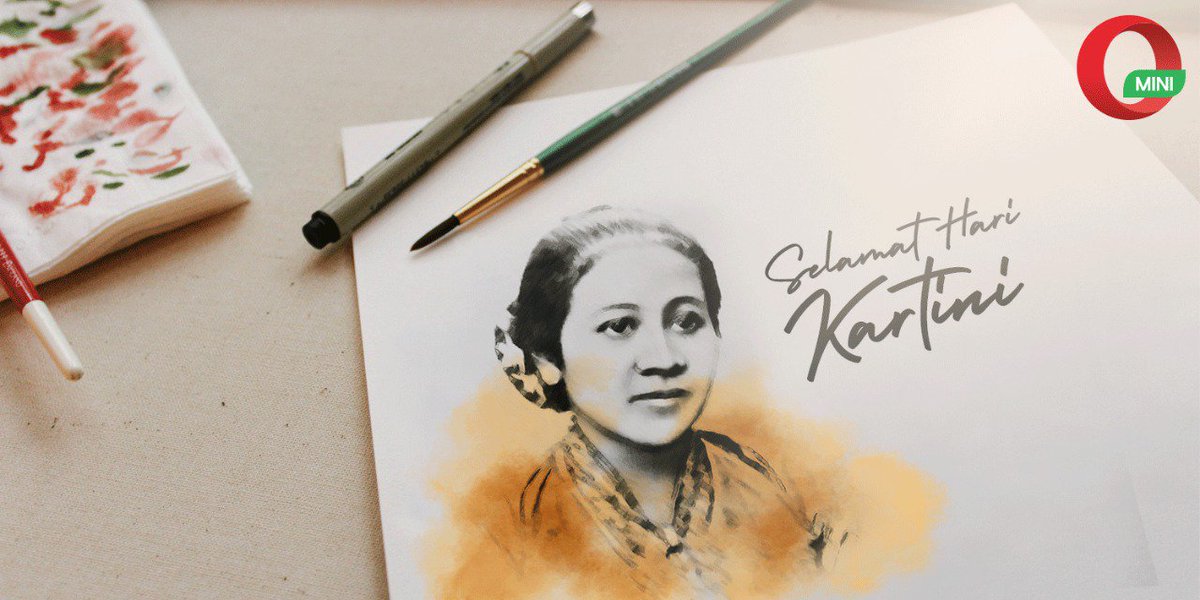 MINI
Selamat Hari
Kartini